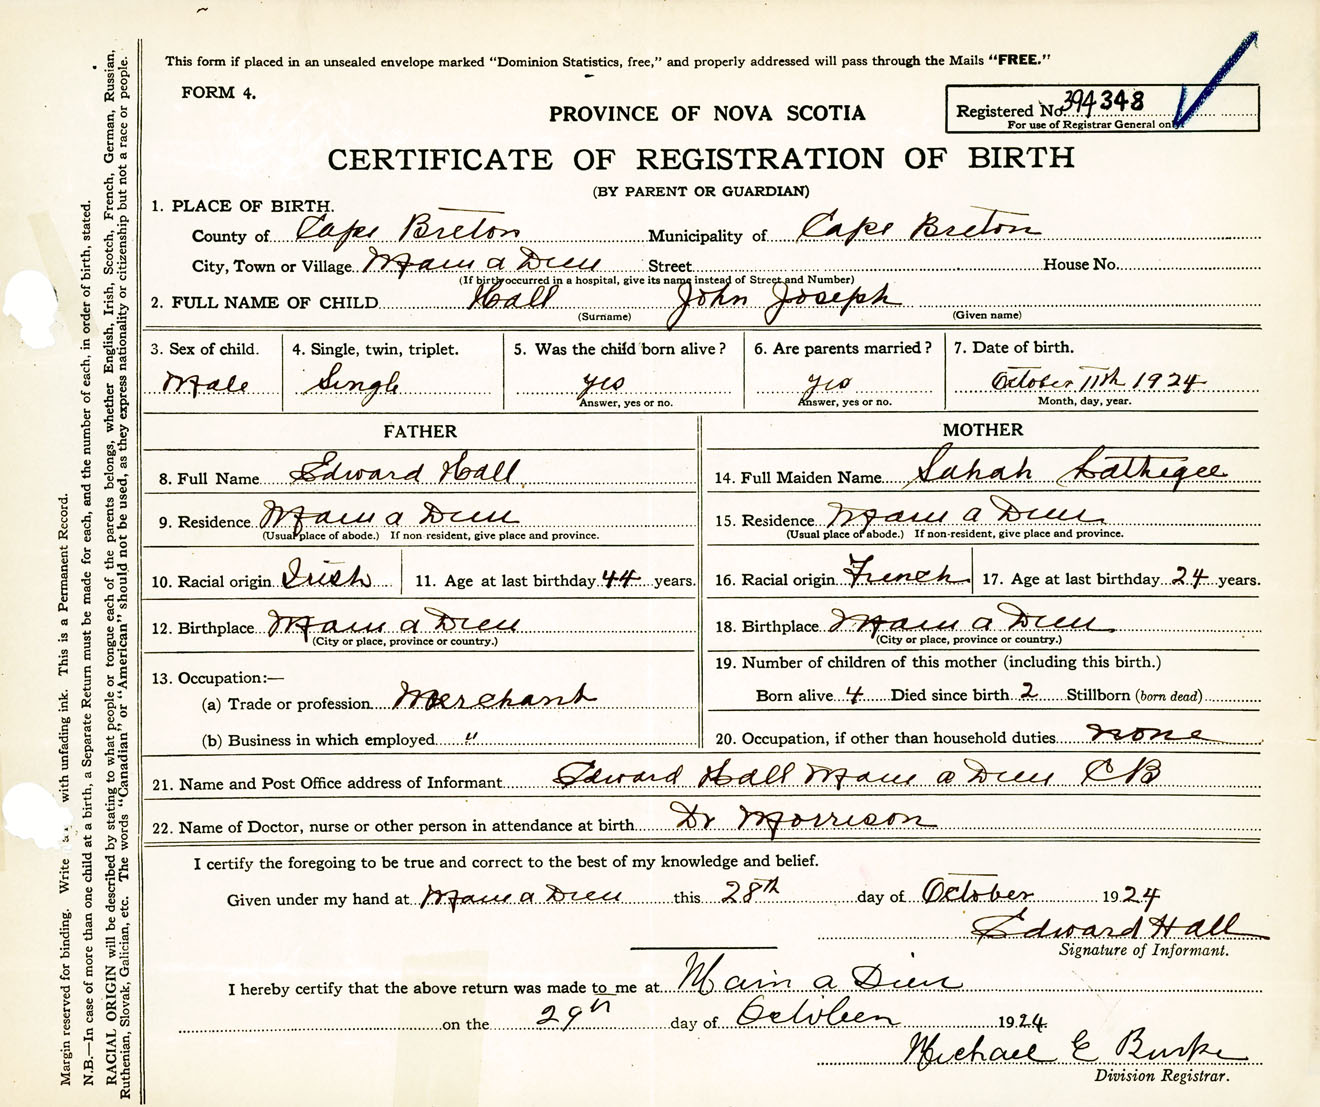 This form if placed in an unsealed envelope marked "Dominion Statistics, free," and properly addressed will pass through the Mails "FREE."
FORM 4.
PROVINCE OF NOVA SCOTIA
Registered No. 394348
For use of Registrar General only.
CERTIFICATE OF REGISTRATION OF BIRTH
(BY PARENT OR GUARDIAN)
1. PLACE OF BIRTH.
County of Cape Breton Municipality of Cape Breton
City, Town or Village Main a Dieu Street House No.
(If birth occurred in a hospital, give its name instead of Street and Number)
2. FULL NAME OF CHILD Hall John Joseph
(Surname) (Given name)
3. Sex of child. 4. Single, twin, triplet. 5. Was the child born alive? 6. Are parents married? 7. Date of birth.
Male Single yes yes October 11th 1924
Answer, yes or no. Answer, yes or no. Month, day, year.
FATHER MOTHER
8. Full Name Edward Hall 14. Full Maiden Name Sahah
9. Residence Main a Dieu 15. Residence Main a Dieu
(Usual place of abode.) If non-resident, give place and province. (Usual place of abode.) If non-resident, give place and province.
10. Racial origin Irish 11. Age at last birthday 44 years. 16. Racial origin French 17. Age at last birthday 24 years.
12. Birthplace Main a Dieu 18. Birthplace Main a Dieu
(City or place, province or country.) (City or place, province or country.)
13. Occupation:— 19. Number of children of this mother (including this birth.)
(a) Trade or profession Merchant Born alive 4 Died since birth 2 Stillborn (born dead)
(b) Business in which employed " 20. Occupation, if other than household duties none
21. Name and Post Office address of Informant Edward Hall Main a Dieu CB
22. Name of Doctor, nurse or other person in attendance at birth Dr Morrison
I certify the foregoing to be true and correct to the best of my knowledge and belief.
Given under my hand at Main a Dieu this 28th day of October 1924
Edward Hall
Signature of Informant.
I hereby certify that the above return was made to me at Main a Dieu
on the 29th day of October 1924
Michael E Burke
Division Registrar.
Margin reserved for binding. Write with unfading ink. This is a Permanent Record.
N.B.—In case of more than one child at a birth, a Separate Return must be made for each, and the number of each, in order of birth, stated.
RACIAL ORIGIN will be described by stating to what people or tongue each of the parents belongs, whether English, Irish, Scotch, French, German, Russian,
Ruthenian, Slovak, Galician, etc. The words "Canadian" or "American" should not be used, as they express nationality or citizenship but not a race or people.